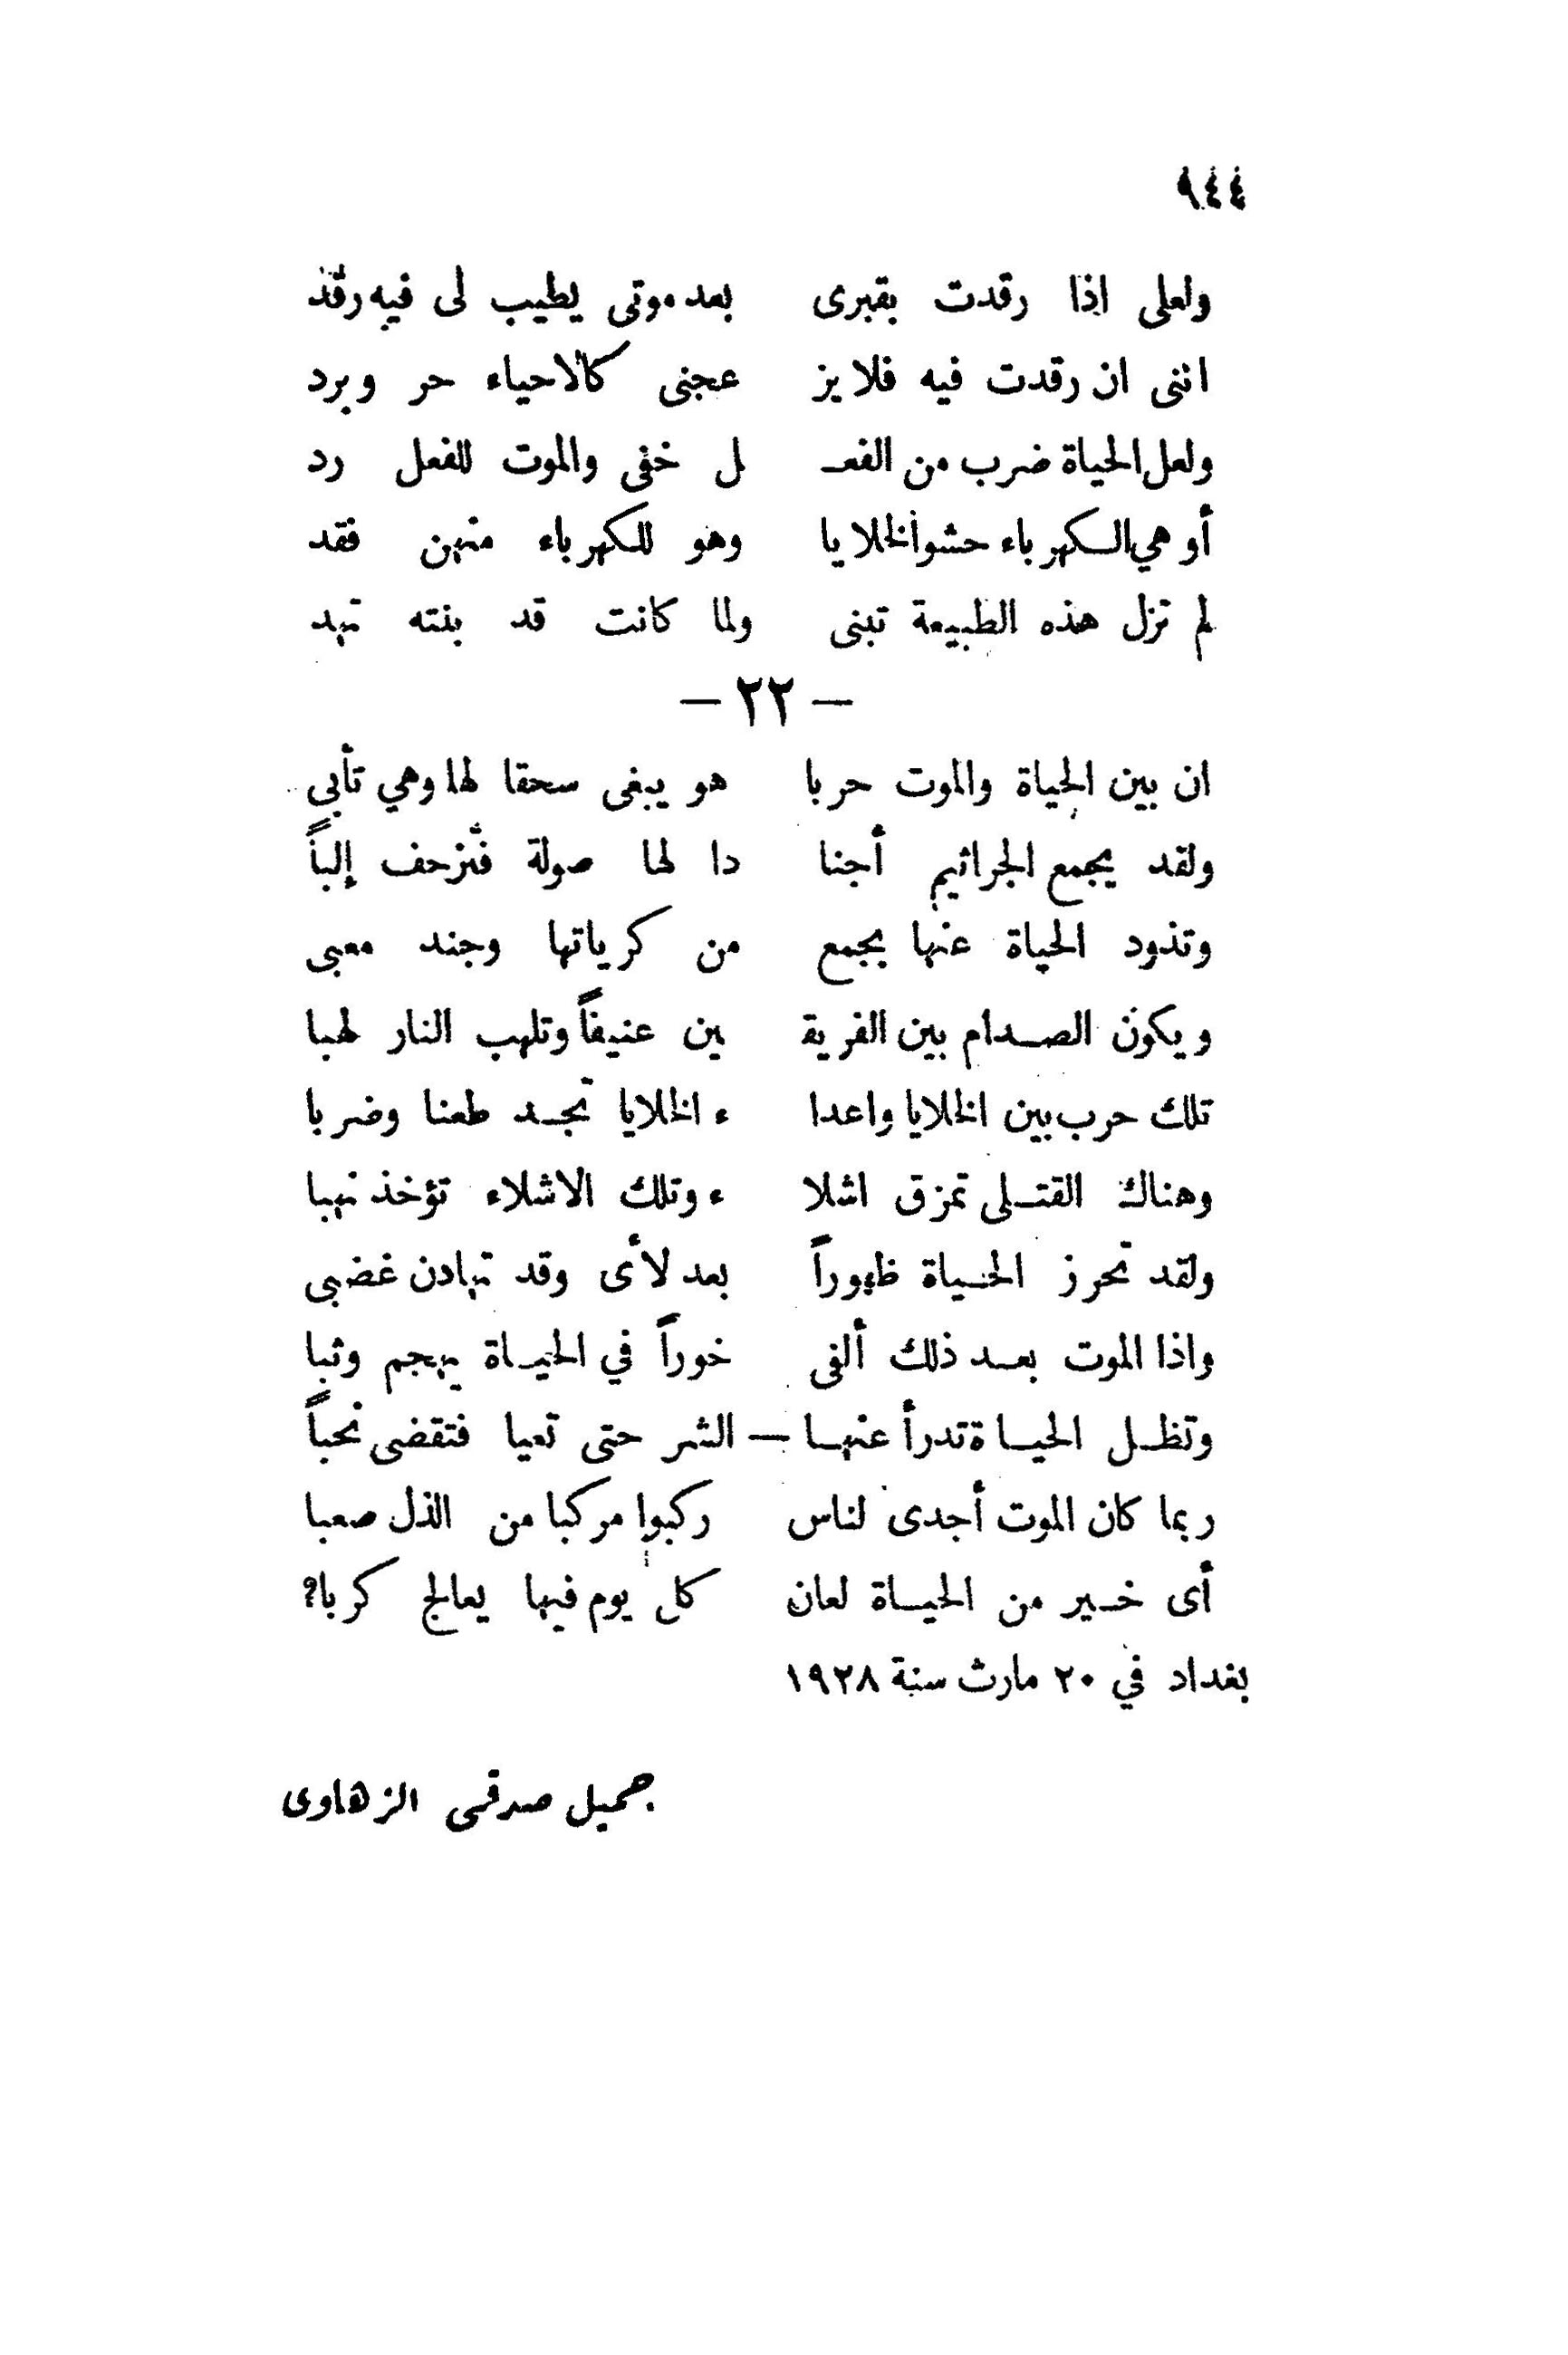 ٩٤٤
ولعلى اذا رقدت بقبرى بعد موتى يطيب لى فيه رقد
اننى ان رقدت فيه فلا يز عجنى كالاحياء حر وبرد
ولعل الحياة ضرب من الفعـ ل خفى والموت للفعل رد
أو هي الكهرباء حشو الخلايا وهو للكهرباء منهن فقد
لم تزل هذه الطبيعة تبنى ولما كانت قد بنته تهد
— ٢٢ —
ان بين الحياة والموت حربا هو يبغى سحقا لها وهي تأبي
ولقد يجمع الجراثيم أجنا دا لها صولة فتزحف إلباً
وتذود الحياة عنها بجمع من كرياتها وجند معبى
ويكون الصدام بين الفريق ين عنيفاً وتلهب النار لهبا
تلك حرب بين الخلايا واعدا ء الخلايا تجد طعنا وضربا
وهناك القتلى تمزق اشلا ء وتلك الاشلاء تؤخذ نهبا
ولقد تحرز الحياة ظهوراً بعد لأى وقد تهادن غضبى
واذا الموت بعد ذلك ألفى خوراً في الحياة يهجم وثبا
وتظل الحياة تدرأ عنها — الشر حتى تعيا فتقضى نحباً
ربما كان الموت أجدى لناس ركبوا مركبا من الذل صعبا
أى خير من الحياة لعان كل يوم فيها يعالج كربا؟
بغداد في ٢٠ مارث سنة ١٩٢٨
جميل صدقى الزهاوى